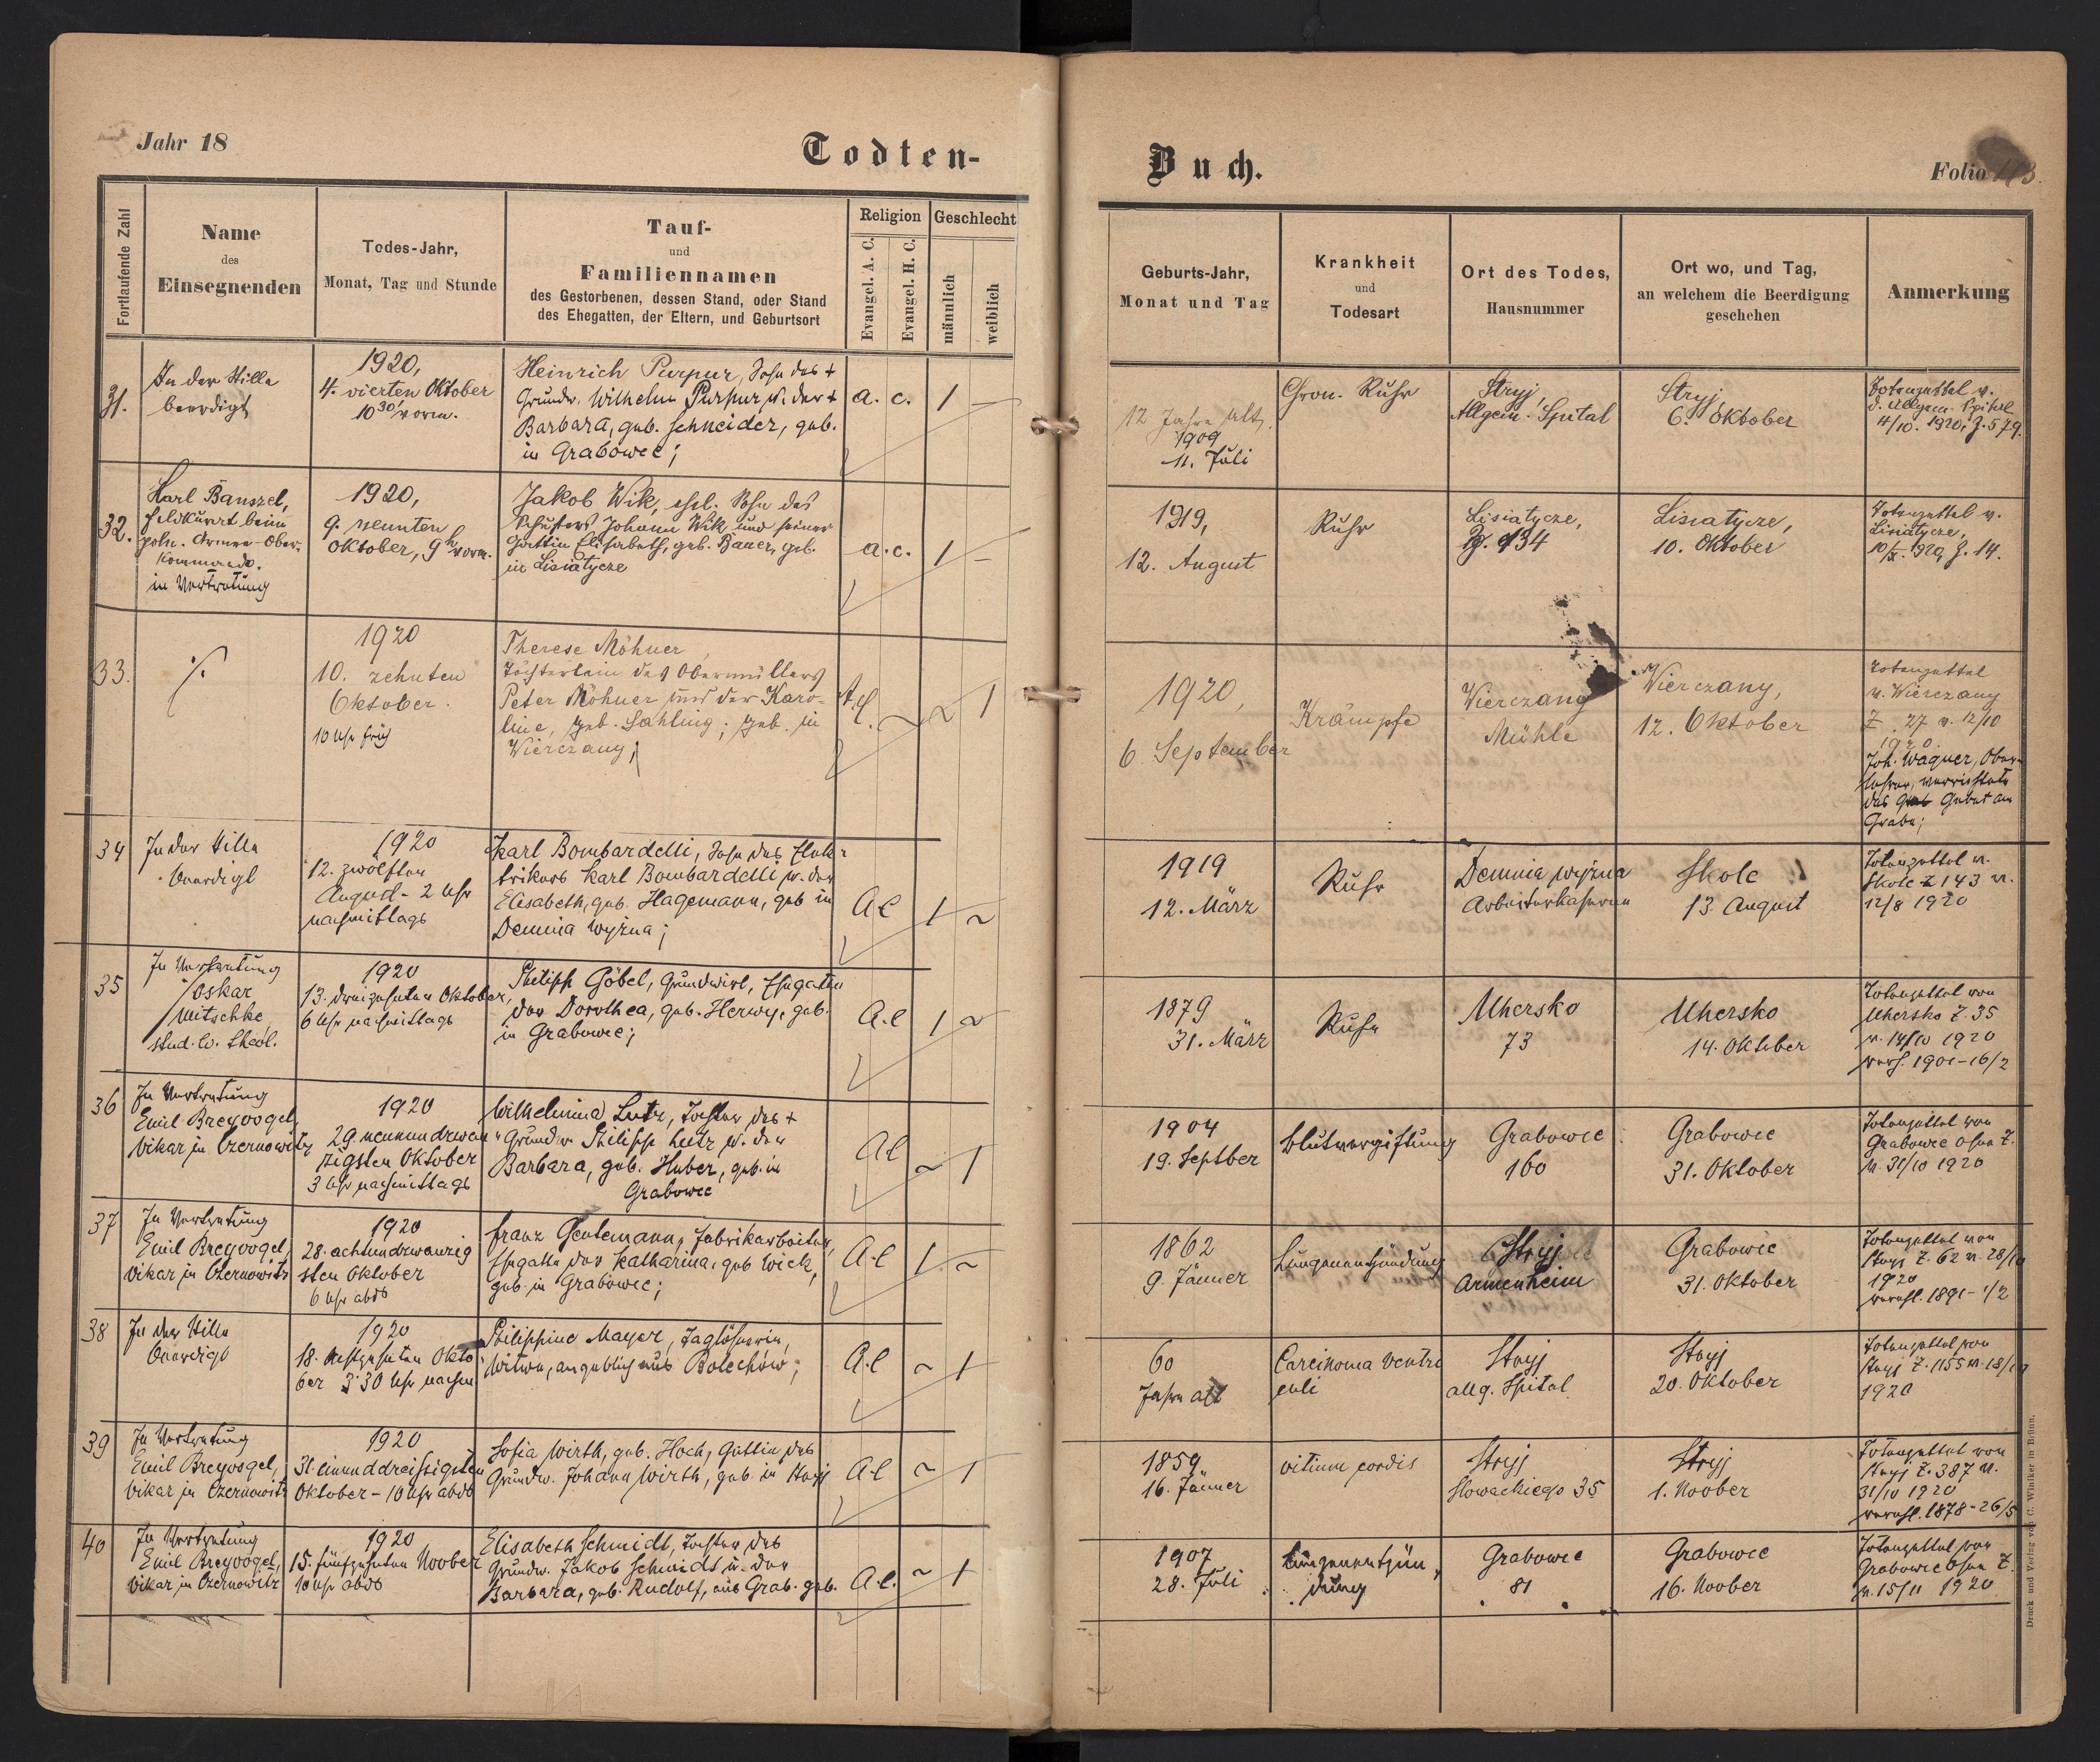 Jahr 18
Todten-
Buch.
Folio 113.
Fortlaufende Zahl
Name
des
Einsegnenden
Todes-Jahr,
Monat, Tag und Stunde
Tauf-
und
Familiennamen
des Gestorbenen, dessen Stand, oder Stand
des Ehegatten, der Eltern, und Geburtsort
Religion
Evangel. A. C.
Evangel. H. C.
Geschlecht
männlich
weiblich
Geburts-Jahr,
Monat und Tag
Krankheit
und
Todesart
Ort des Todes,
Hausnummer
Ort wo, und Tag,
an welchem die Beerdigung
geschehen
Anmerkung
31.
In der Stille
beerdigt
1920,
4. vierten Oktober
10 30' vorm.
Heinrich Purpur, Sohn des +
Grundw. Wilhelm Purpur u. der +
Barbara, geb. Schneider, geb.
in Grabowec;
a. c.
1
—
12 Jahre alt,
1909
11. Juli
Chron. Ruhr
Stryj,
Allgem. Spital
Stryj,
6. Oktober
Totenzettel v.
d. Allgem. Spital
4/10. 1920, Z. 579.
32.
Karl Banszel,
Feldkurat beim
poln. Armee-Ober-
Kommando.
in Vertretung
1920,
9. neunten
Oktober, 9h vorm.
Jakob Wik, ehel. Sohn des
Schusters Johann Wik und seiner
Gattin Elisabeth, geb. Bauer, geb.
in Lisiatycze
a. c.
1
—
1919,
12. August
Ruhr
Lisiatycze,
134
Lisiatycze,
10. Oktober
Totenzettel v.
Lisiatycze,
10/X. 1920, Z. 14.
33.
⁒
1920
10. zehnten
Oktober.
10 Uhr früh
Therese Möhner,
Töchterlein des Obermüllers
Peter Möhner und der Karo-
line, geb. Sahling; geb. in
Wierczany;
~
1
1920,
6. September
Krämpfe
Wierczany
Mühle
Wierczany,
12. Oktober
Totenzettel
v. Wierczany
Z. 27 v. 12/10
1920.
Joh. Wagner, Ober-
lehrer, verrichtete
das Gebet am
Grabe;
34
In der Stille
beerdigt
1920
12. zwölften
August - 2 Uhr
nachmittags
Karl Bombardelli, Sohn des Elek-
trikers Karl Bombardelli u. der
Elisabeth, geb. Hagemann, geb in
Demnia wyżna;
A C
1
~
1919
12. März
Ruhr
Demnia wyżna
Arbeiterkaserne
Skole
13. August
Totenzettel v.
Skole Z 143 v.
12/8 1920
35
In Vertretung
Oskar
Mitschke,
stud. ev. theol.
1920
13. dreizehnten Oktober,
6 Uhr nachmittags
Philipp Göbel, Grundwirt, Ehegatte
der Dorothea, geb. Herwy, geb.
in Grabowec;
A. C
1
~
1879
31. März
Ruhr
Uhersko
73
Uhersko
14. Oktober
Totenzettel von
Uhersko Z. 35
v. 14/10 1920
verh. 1901-16/2
36
In Vertretung
Emil Breyvogel,
Vikar in Czernowitz
1920
29. neunundzwan-
zigsten Oktober
3 Uhr nachmittags
Wilhelmina Lutz, Tochter des +
Grundw. Philipp Lutz u. der
Barbara, geb. Huber, geb. in
Grabowec
A C
~
1
1904
19. Septber
Blutvergiftung
Grabowec
160
Grabowec
31. Oktober
Totenzettel von
Grabowec ohne Z.
v. 31/10 1920
37
In Vertretung
Emil Breyvogel,
Vikar in Czernowitz
1920
28. achtundzwanzig
sten Oktober
6 Uhr abds
Franz Gentemann, Fabrikarbeiter,
Ehegatte der Katharina, geb Wick,
geb. in Grabowec;
A. C
1
~
1862
9. Jänner
Lungenentzündung
Stryj
Armenheim
Grabowec
31. Oktober
Totenzettel von
Stryj Z. 62 v. 28/10
1920
verehl. 1891-1/2
38
In der Stille
beerdigt
1920
18. achtzehnten Okto
ber 3 30 Uhr nachm
Philippine Mayer, Taglöhnerin,
Witwe, angeblich aus Bolechów;
A. C
~
1
60
Jahre alt
Carcinoma ventri
culi
Stryj
allg. Spital
Stryj
20. Oktober
Totenzettel von
Stryj Z. 1155 v. 18/10
1920
39
In Vertretung
Emil Breyvogel,
Vikar in Czernowitz
1920
31. einunddreissigsten
Oktober - 10 Uhr abds
Sofia Wirth, geb. Hoch, Gattin des
Grundw. Johann Wirth, geb. in Stryj
A. C
~
1
1859
16. Jänner
vitium cordis
Stryj
Słowackiego 35
Stryj
1. Novber
Totenzettel von
Stryj Z. 387 v.
31/10 1920
verehl. 1878-26/5
40
In Vertretung
Emil Breyvogel,
Vikar in Czernowitz
1920
15. fünfzehnten Novber
10 Uhr abds
Elisabeth Schmidt, Tochter des
Grundw. Jakob Schmidt u. der
Barbara, geb. Rudolf, aus Grab. geb.
A. C.
~
1
1907
28. Juli
Lungenentzün-
dung
Grabowec
81
Grabowec
16. Novber
Totenzettel von
Grabowec ohne Z.
v. 15/11 1920
Druck und Verlag von C. Winiker in Brünn.